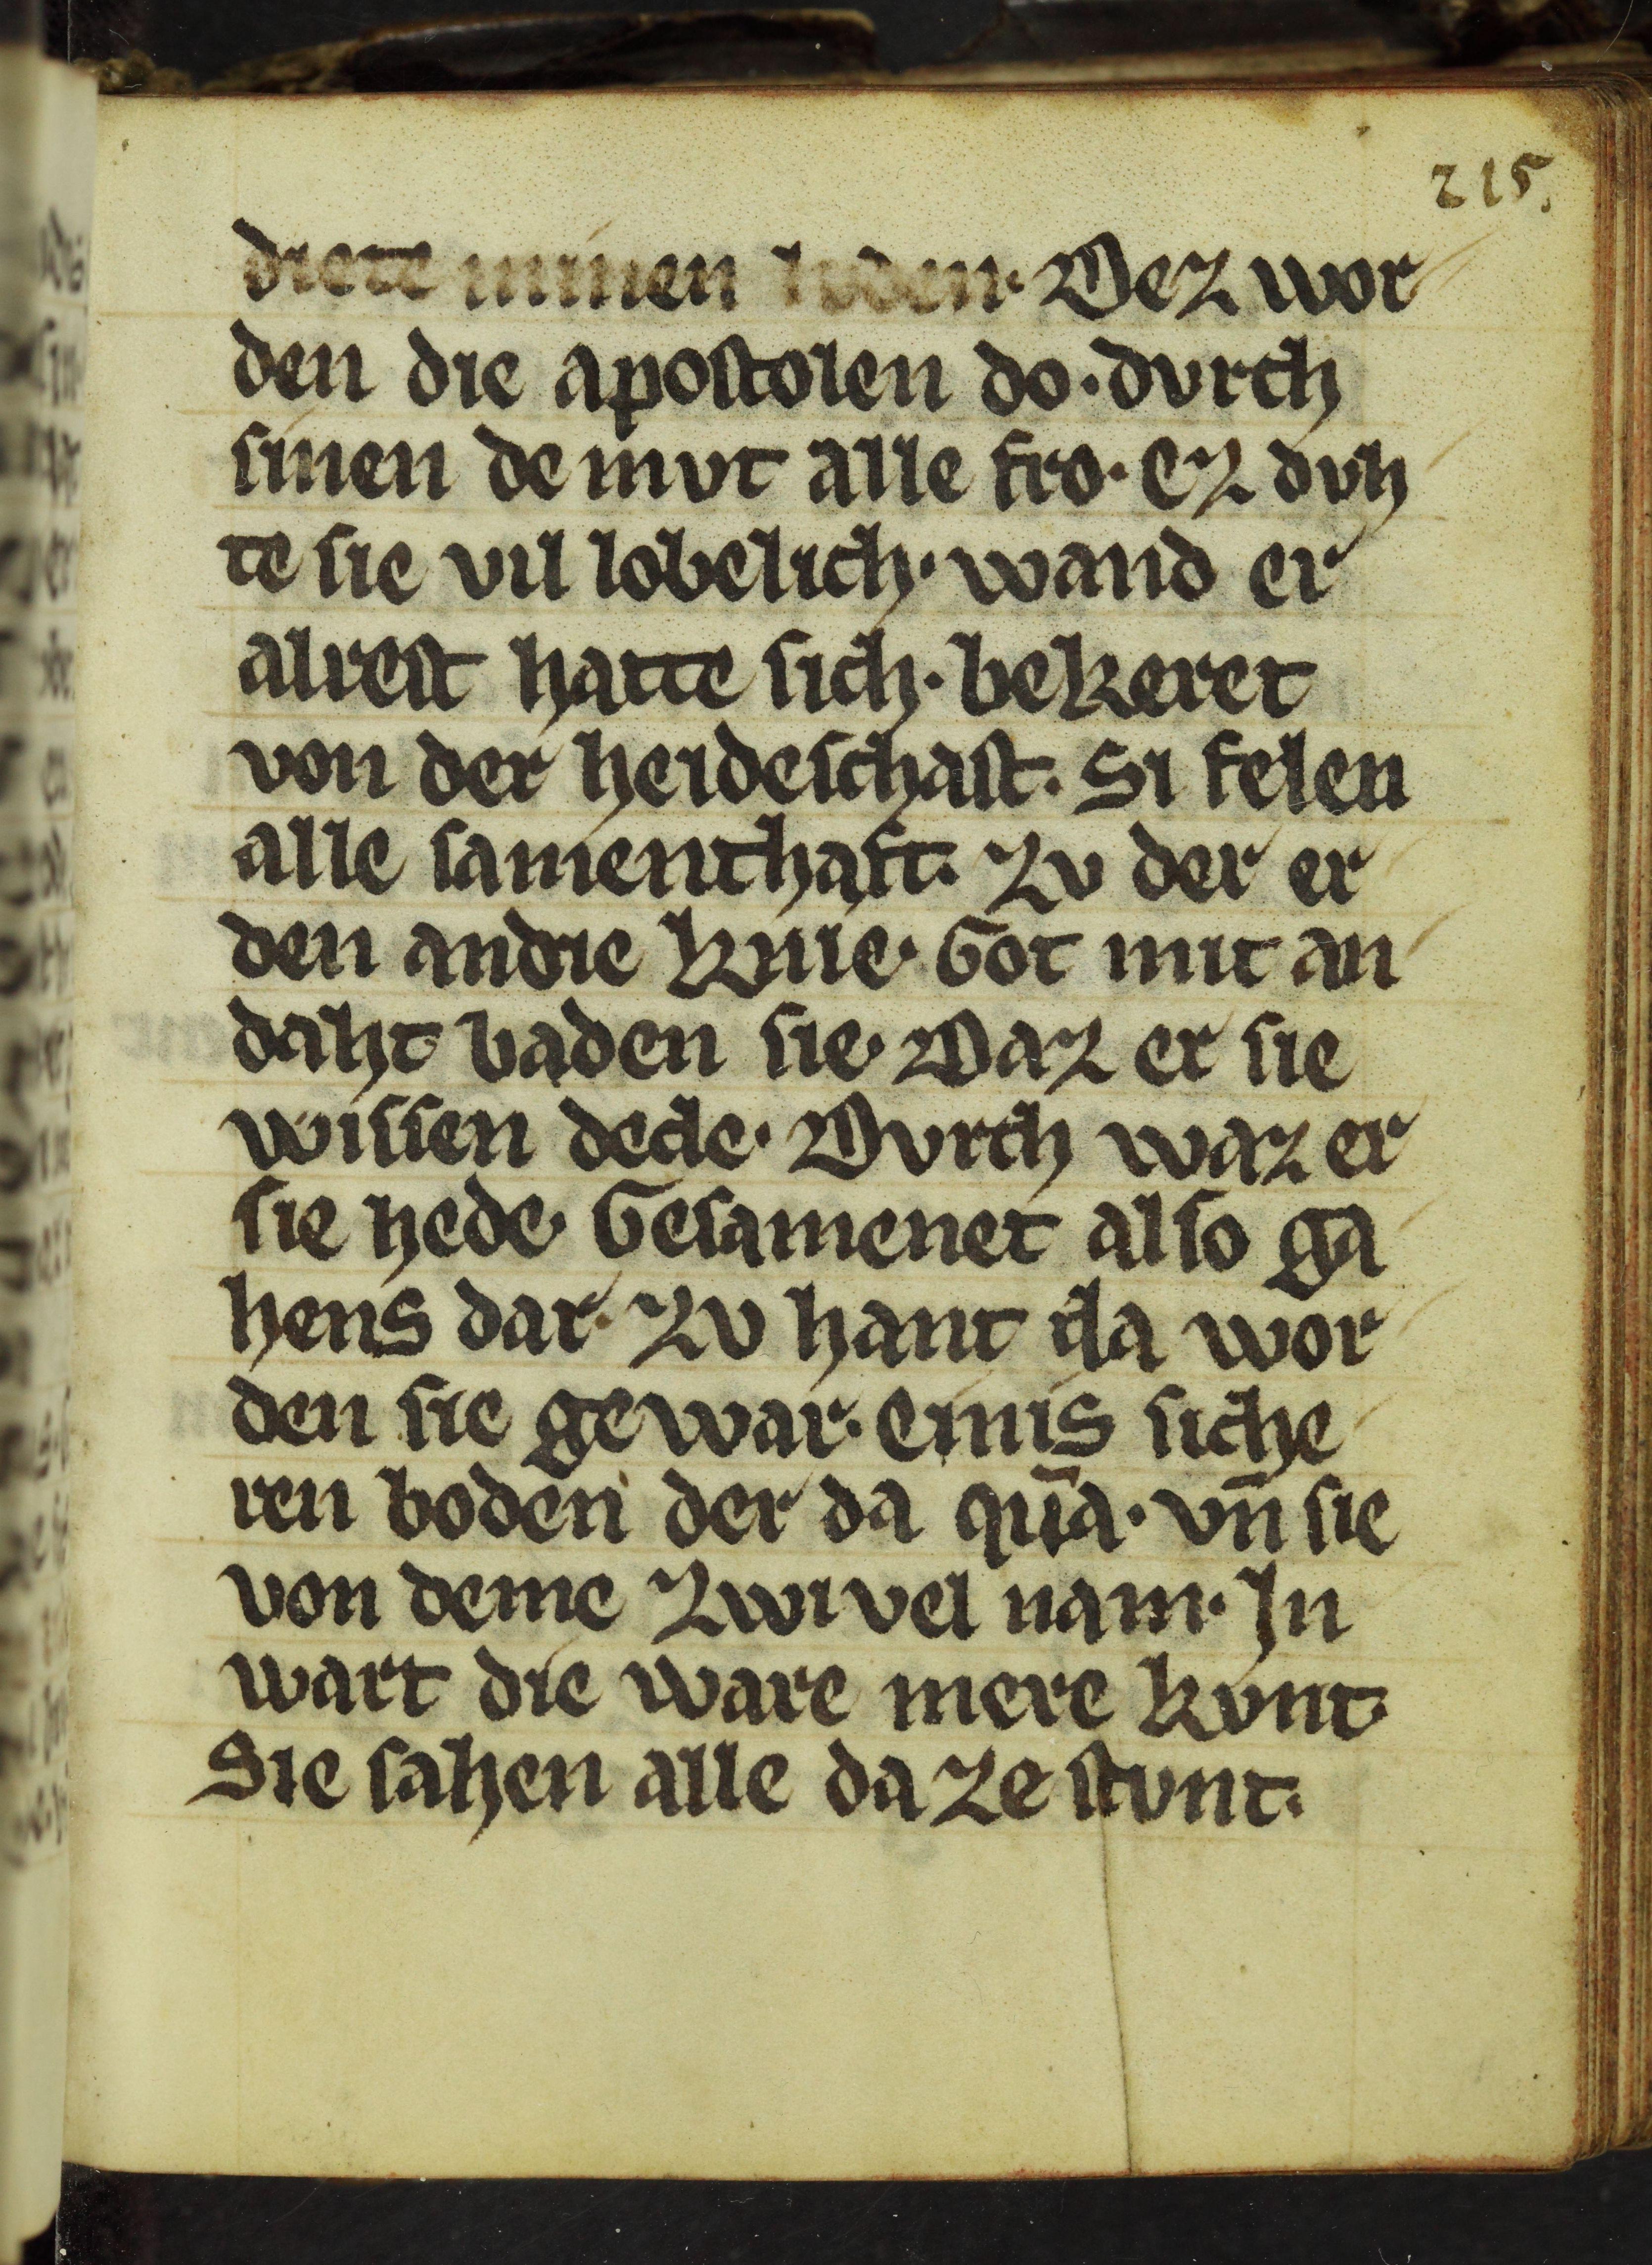 215.
diete minen luden· Dez wor
den die apostolen do· dvrch
sinen demvt alle fro· Ez dvh
te sie vil lobelich· wand er
alrest hatte sich· bekeret
von der heideschaft· Si felen
alle samenthaft· Zv der er
den an die knie· Got mit an
daht baden sie· Daz er sie
wissen dede· Dvrch waz er
sie hede· Gesamenet also ga
hens dar· Zv hant da wor
den sie gewar· einis siche
ren boden der da qua̅· vn̅ sie
von deme zwivel nam· In
wart die ware mere kvnt·
Sie sahen alle da ze stvnt·